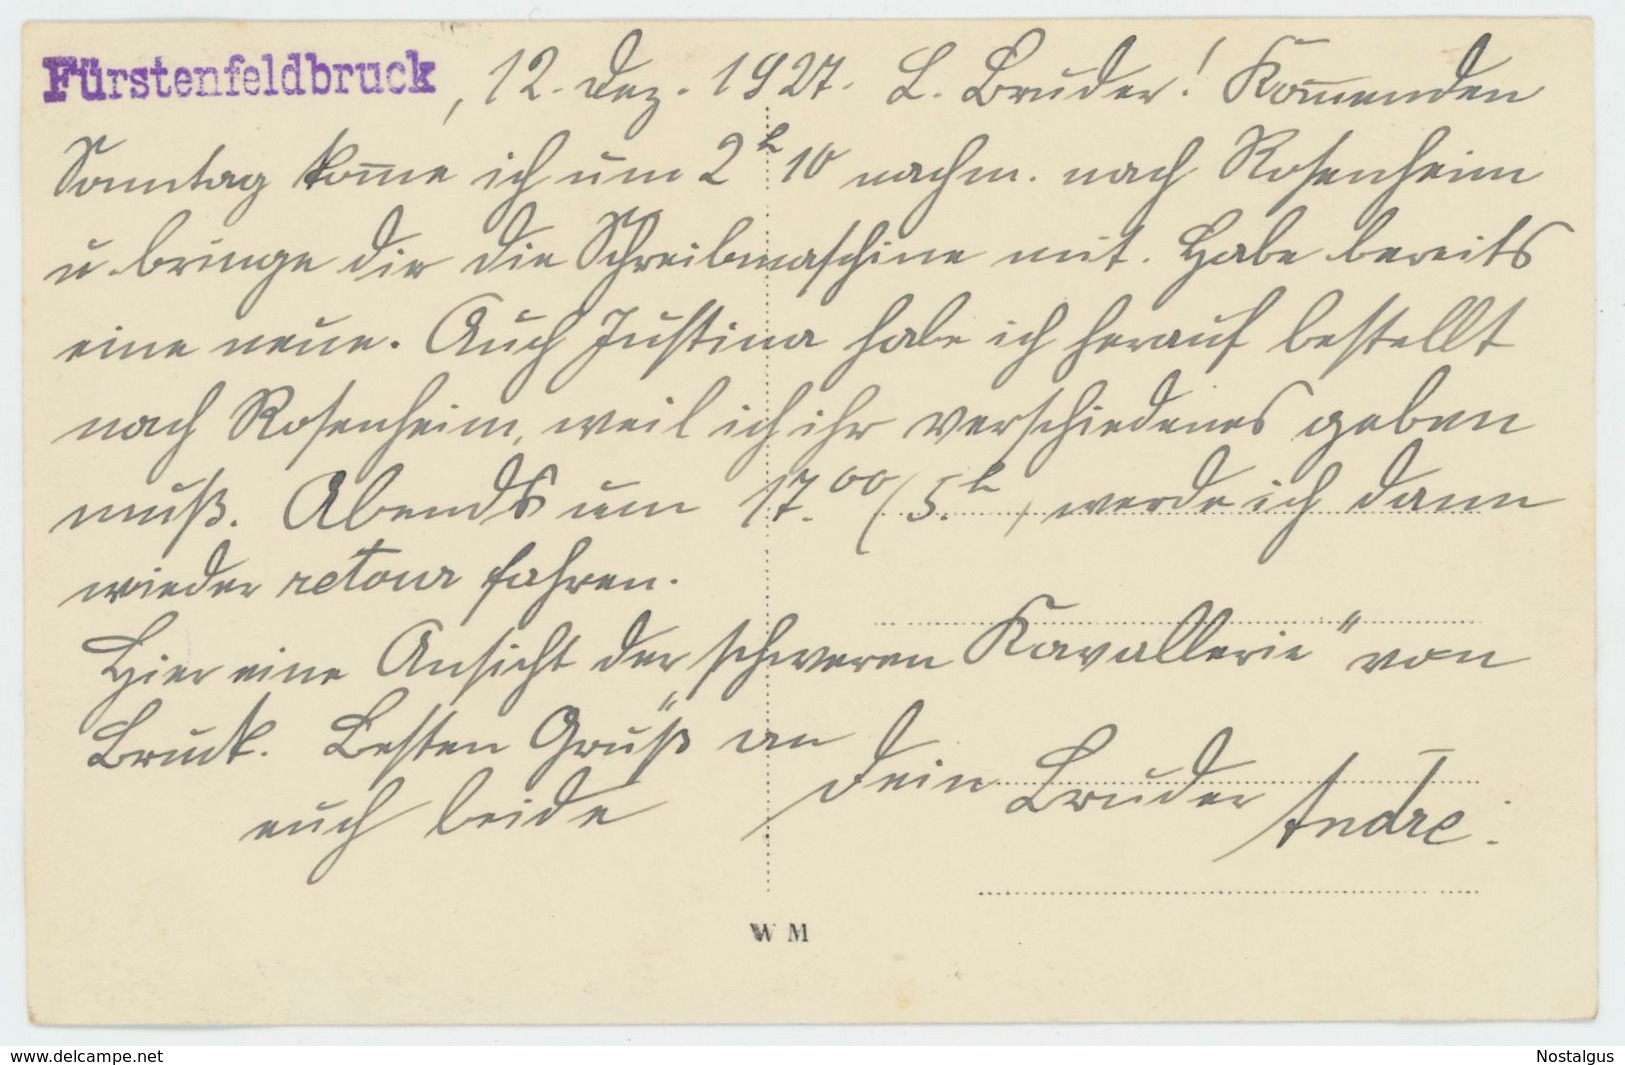 Fürstenfeldbruck, 12. Dez. 1927. L. Bruder! Kom̅enden
Sonntag kom̅e ich um 2h 10 nachm. nach Rosenheim
u bringe dir die Schreibmaschine mit. Habe bereits
eine neue. Auch Justina habe ich herauf bestellt
nach Rosenheim, weil ich ihr verschiedenes geben
muß. Abends um 17.00 (5.h) werde ich dann
wieder retour fahren.
Hier eine Ansicht der „schweren Kavallerie" von
Bruck. Besten Gruß an
euch beide
Dein Bruder Andre.
W M
www.delcampe.net
Nostalgus